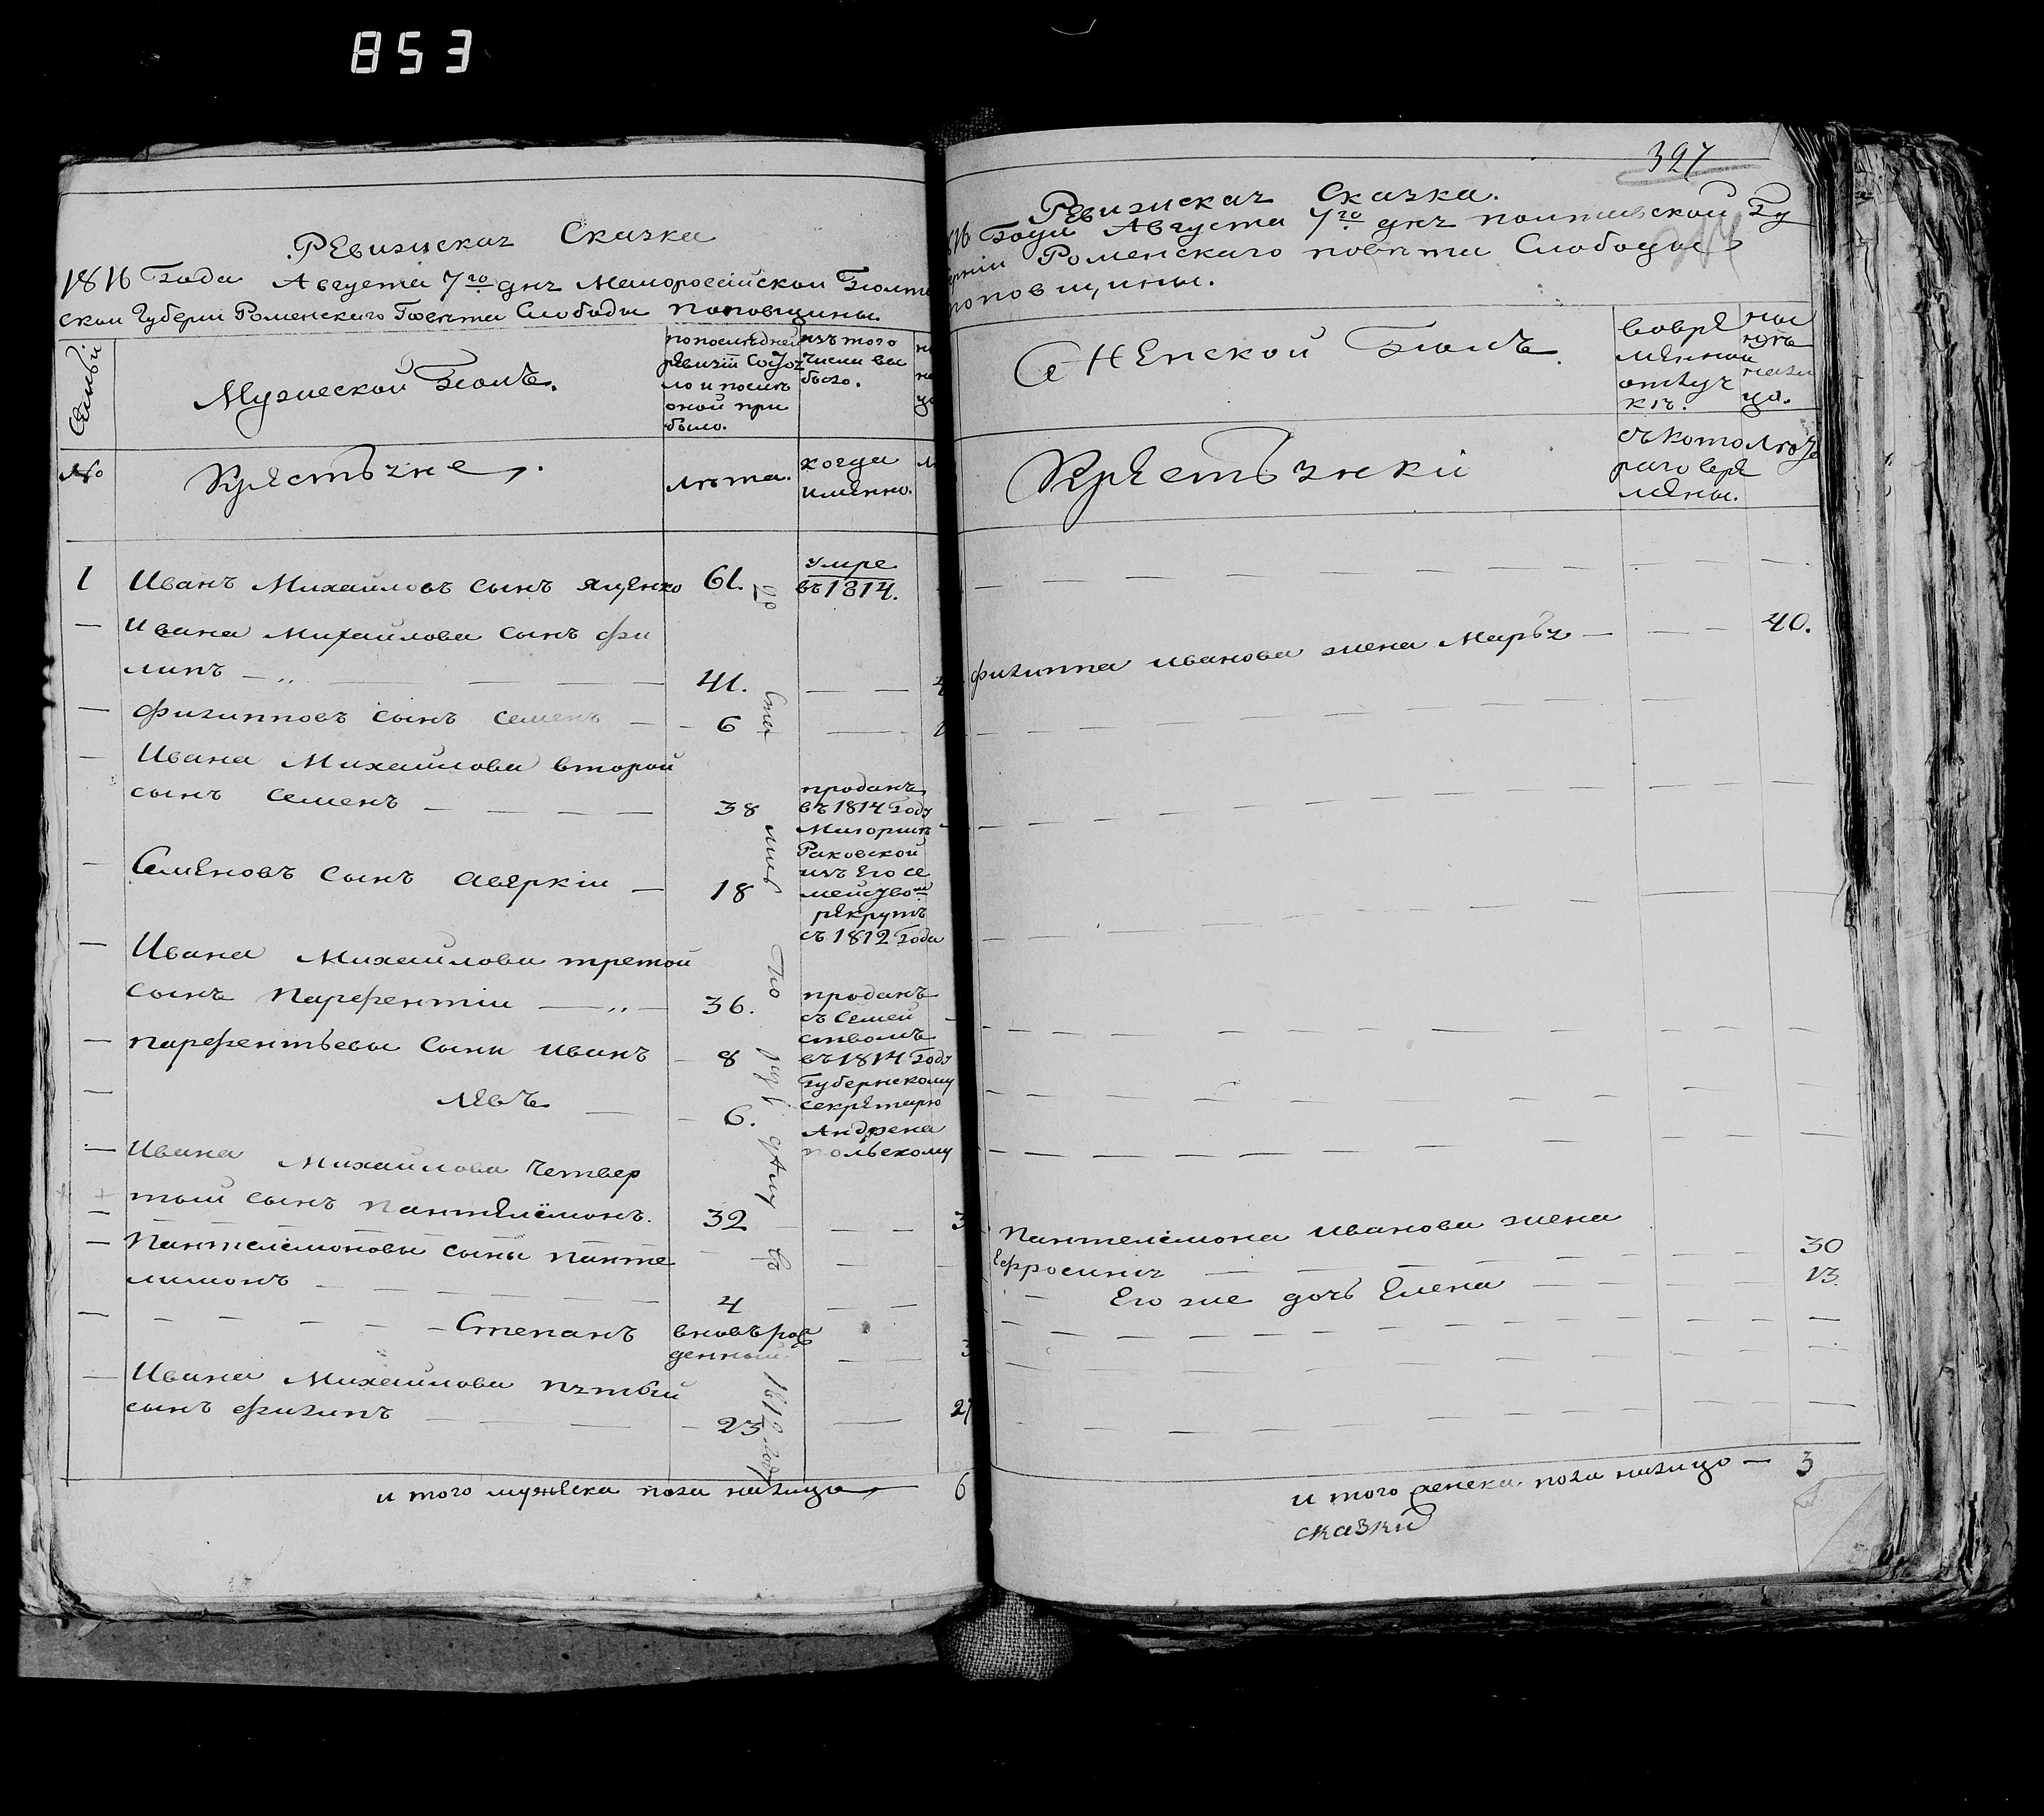 853
Ревизская Сказка
1816 Года Августа 7го дня Малоросийской Полта
ской Губерни Роменского Повета Слободы Поповщины
Семьи
Мужеской Полъ.
по последней
ревизiи состоя
ло и после
оной при
было.
изъ того
числа вы
было.
№
Крестьяне,
лета.
когда
именно.
1 Иванъ Михайловъ сынъ Яценко 61. Умре
въ 1814.
Ивана Михайлова сынъ Фи
липъ 41.
Филиповъ сынъ Семенъ 6
Ивана Михайлова второй
сынъ Семенъ 38
проданъ
въ 1814 Году
Маиорше
Раковской
изъ Его се
мейство
Семеновъ сынъ Аверкiи 18
рекрутъ
съ 1812 Года
Ивана Михайлова третой
сынъ Парфентiи 36.
Парфентьевы Сыни Иванъ 8
Левъ 6.
проданъ
съ Семей
ствомъ
въ 1814 Году
Губернскому
секретарю
Андрена
польскому
Ивана Михайлова Четвер
тый сынъ Пантелiмонъ. 32
Пантелемоновы сыны Панте
лимонъ 4
Степанъ вновь рож
денный
Ивана Михайлова пятый
сынъ Филипъ 23 27
и того мужеска пола налицо 6
397
Ревизская Сказка.
1816 Года Августа 7го дня полтавской Гу
бернiи Роменскаго повета Слободы
поповщины.
Женской Полъ.
вовре
менной
отлуч
ке.
ны
не
нали
цо.
Крестьянки
съ кото
раго вре
мены.
лета
Филиппа Иванова жена Марья 40.
Пантелемона Иванова жена
Ефросиня 30
Его же дочь Елена 13.
и того женска пола налицо 3
сказки